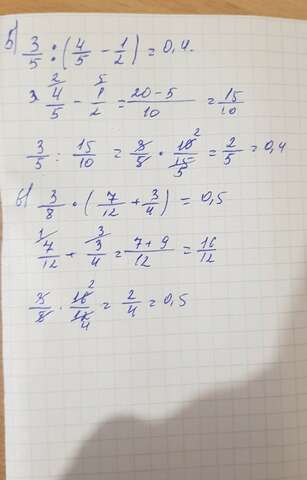 б) 3/5 : (4/5 - 1/2) = 0,4.
4/5 - 1/2 = 20-5/10 = 15/10
3/5 : 15/10 = 3/5 · 10/15 = 2/5 = 0,4
в) 3/8 · (7/12 + 3/4) = 0,5
7/12 + 3/4 = 7+9/12 = 16/12
3/8 · 16/12 = 2/4 = 0,5